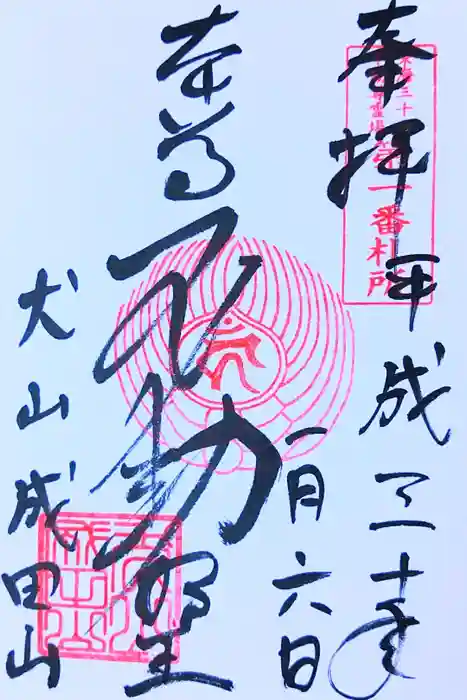 奉拝 平成三十年
一月六日
本尊 不動尊
犬山成田山
第一番札所